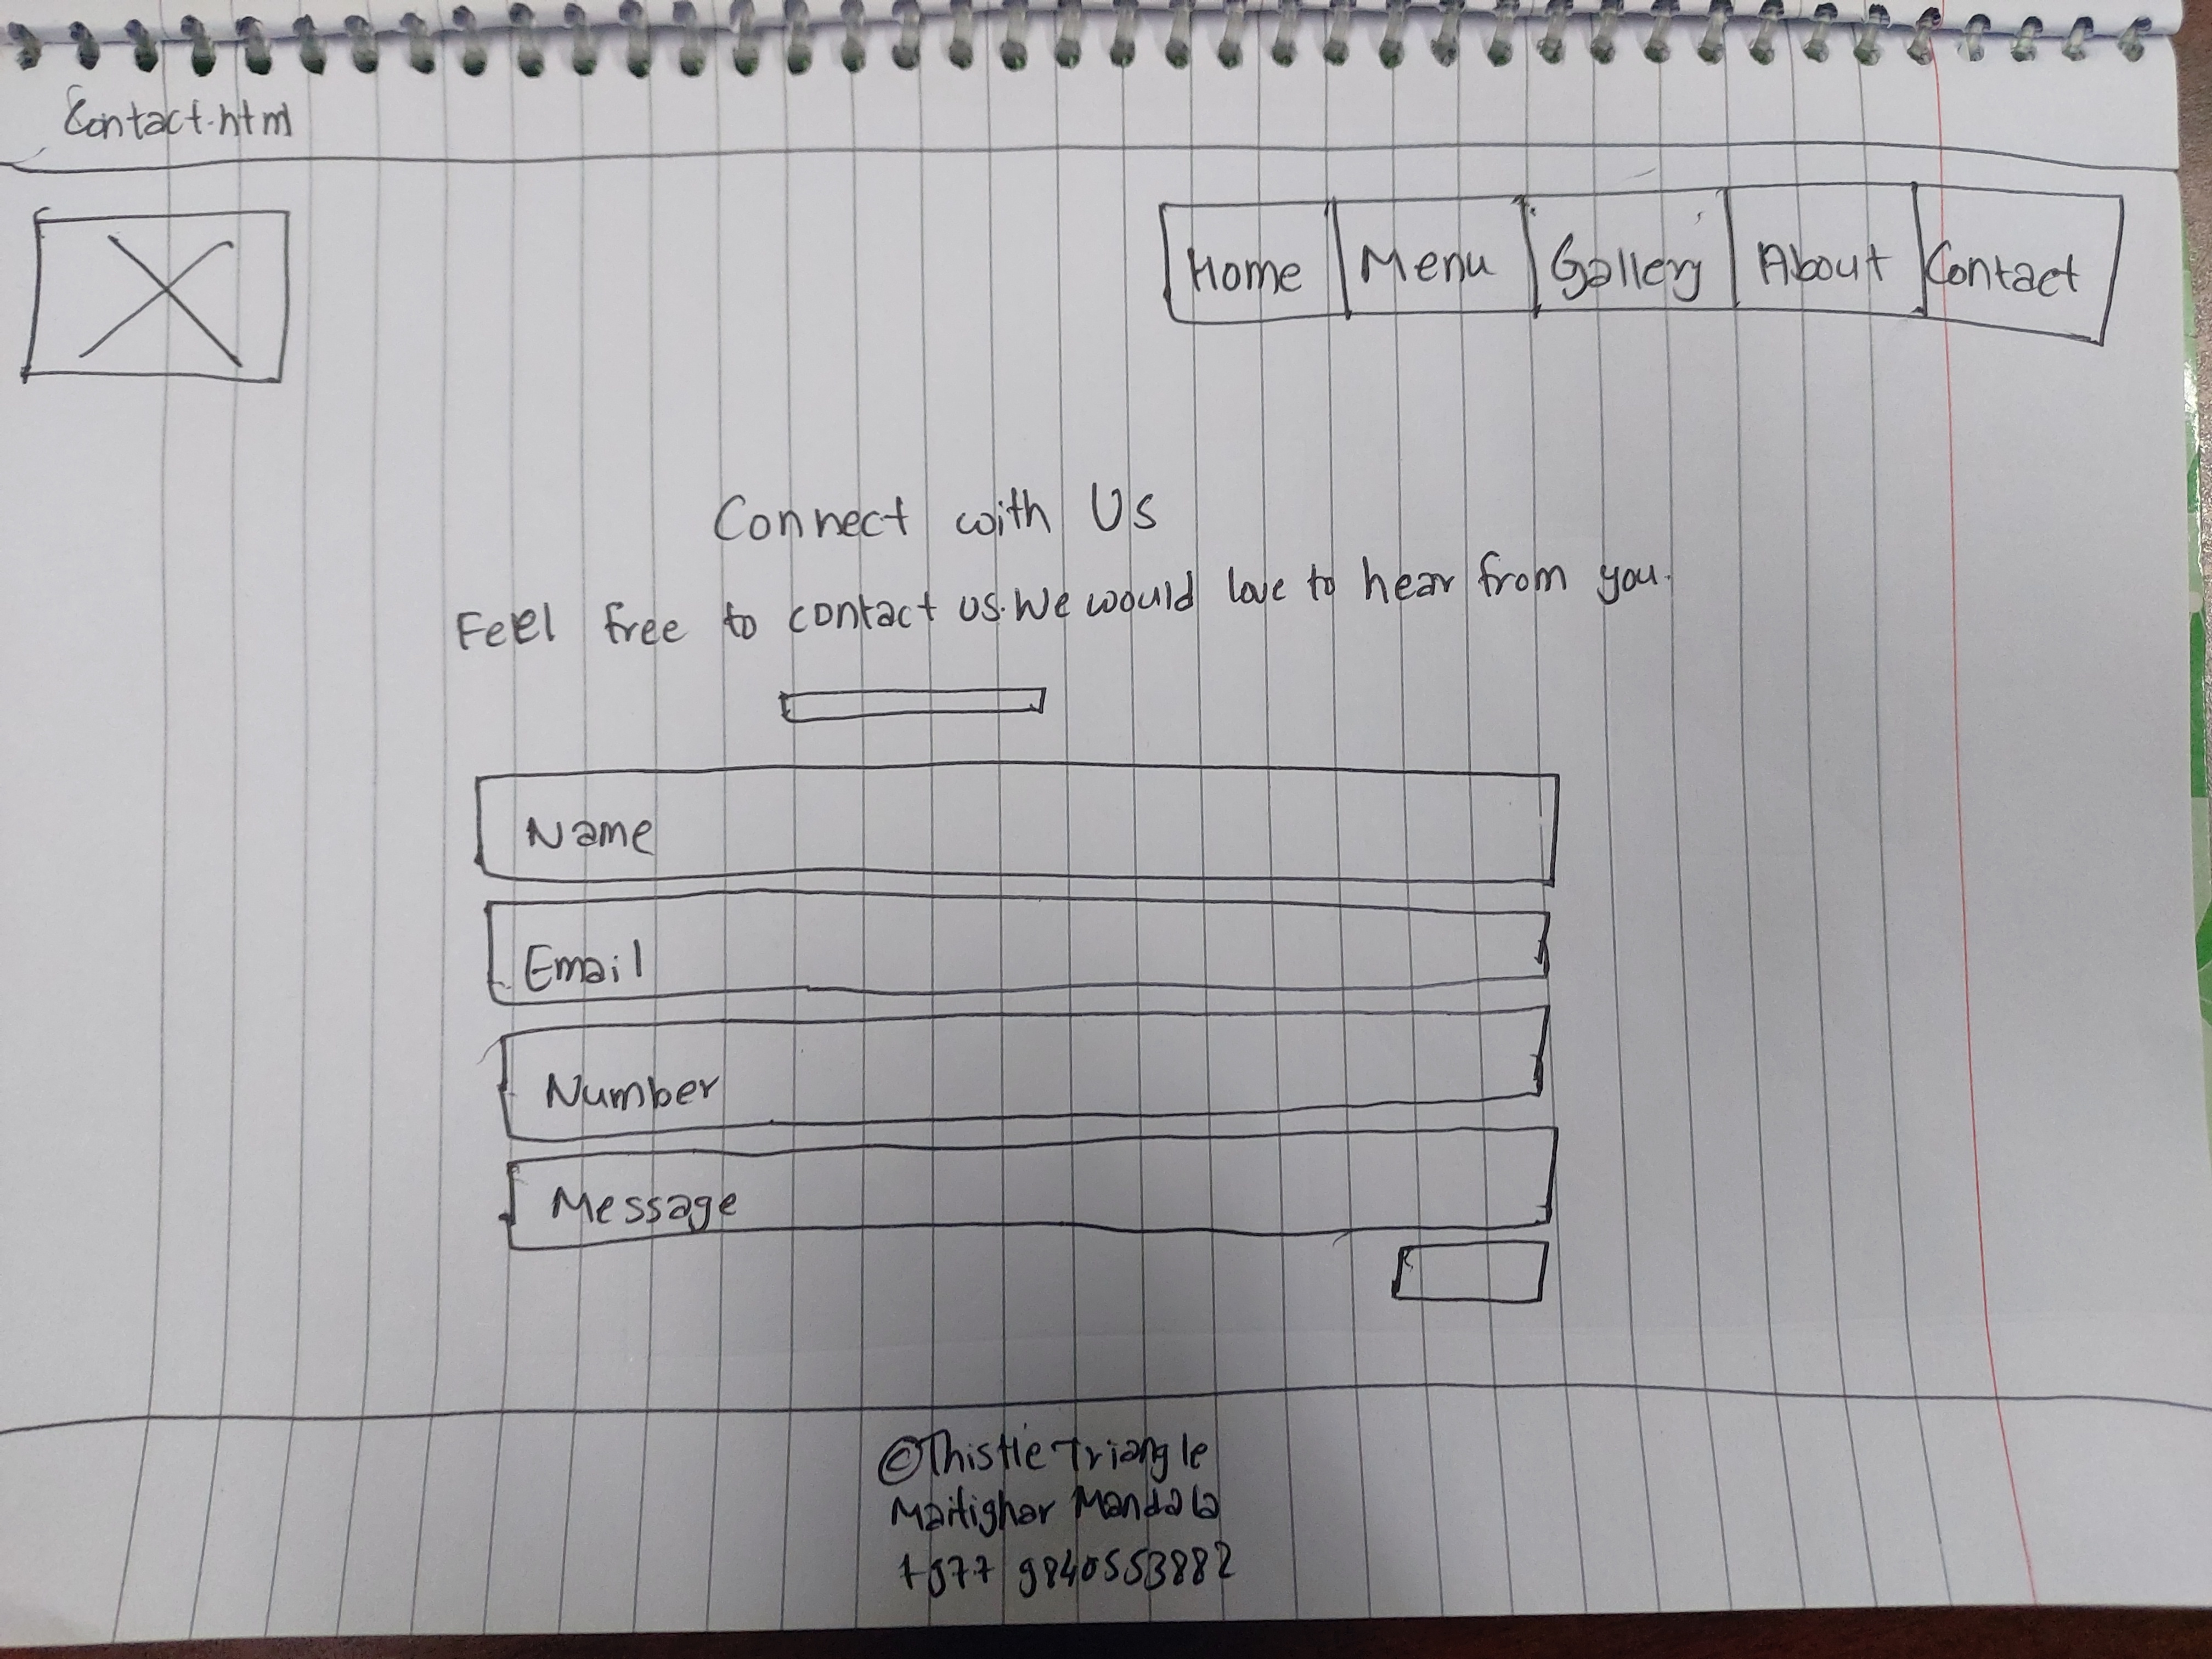 Contact.html
Home Menu Gallery About Contact
Connect with Us
Feel free to contact us. We would love to hear from you.
Name
Email
Number
Message
©Thistle Triangle
Maitighar Mandala
+977 9840553882